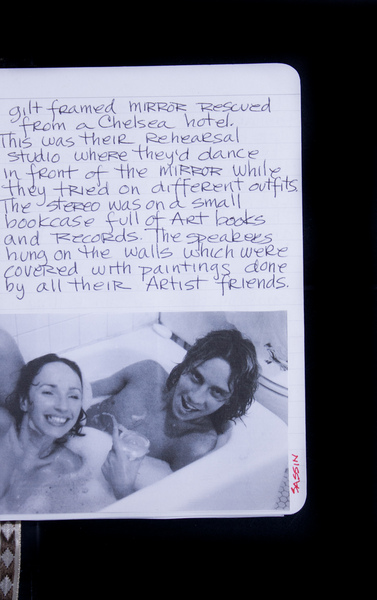 gilt framed MIRROR RESCUED
from a Chelsea hotel.
This was their Rehearsal
studio where they'd dance
in front of the MIRROR while
they tried on different outfits.
The stereo was on a small
bookcase full of Art books
and Records. The speakers
hung on the walls which were
covered with paintings done
by all their Artist friends.
SASSIN